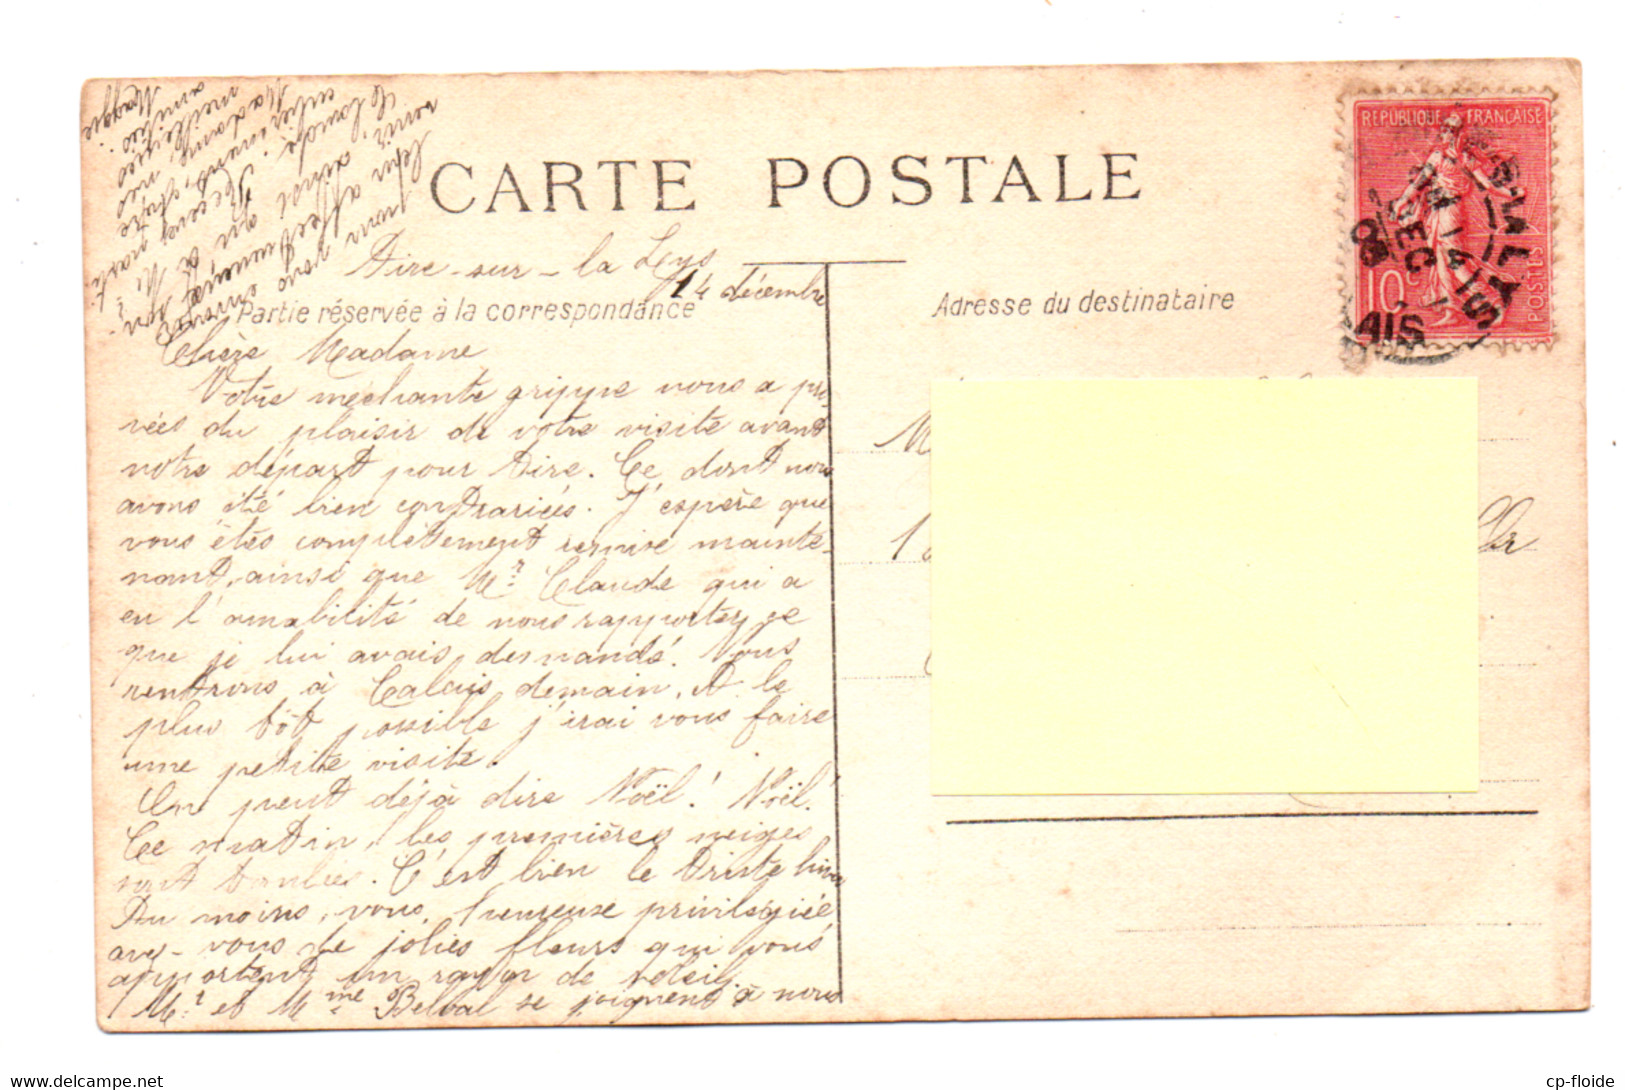 CARTE POSTALE
Aire-sur-la Leys
14 décembre
Partie réservée à la correspondance
Adresse du destinataire
Chère Madame
Votre mechante grippe nous a pri-
vées du plaisir de votre visite avant
notre départ pour Aire. Ce dont nous
avons été bien contrariées. J'espère que
vous êtes complètement remise mainte-
nant, ainsi que Mr Claude qui a
eu l'amabilité de nous rapporter ce
que je lui avais demandé. Nous
rentrons à Calais demain, et le
plus tôt possible j'irai vous faire
une petite visite.
On peut déjà dire Noël! Noël!
Ce matin, les premières neiges
sont tombées. C'est bien le triste hiver
Au moins, vous, heureuse privilégiée
avez-vous de jolies fleurs qui vous
apportent un rayon de soleil.
Mr et Mme Belval se joignent à nous
pour vous envoyer
leur affectueux sou-
venir ainsi qu'à Mr
Claude. Recevez, chère
Madame, nos
meilleures
amitiés.
Maggie
RÉPUBLIQUE FRANÇAISE
10c
POSTES
AIRE-S-LA-LYS
14 DEC
08
M
1
Cl-floide